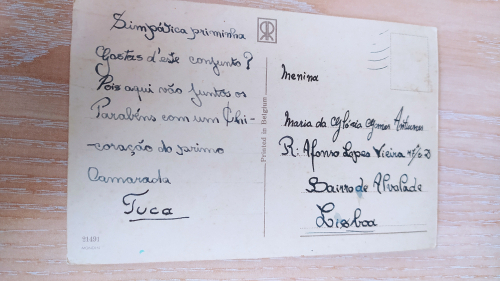 Simpática priminha
Gostas d'este conjunto?
Pois aqui vão juntos os
Parabéns com um Chi-
-coração do primo
Camarada
Tuca
21421
Printed in Belgium
Menina
Maria da Glória Gomes Antunes
R: Afonso Lopes Vieira
Bairro de Alvalade
Lisboa